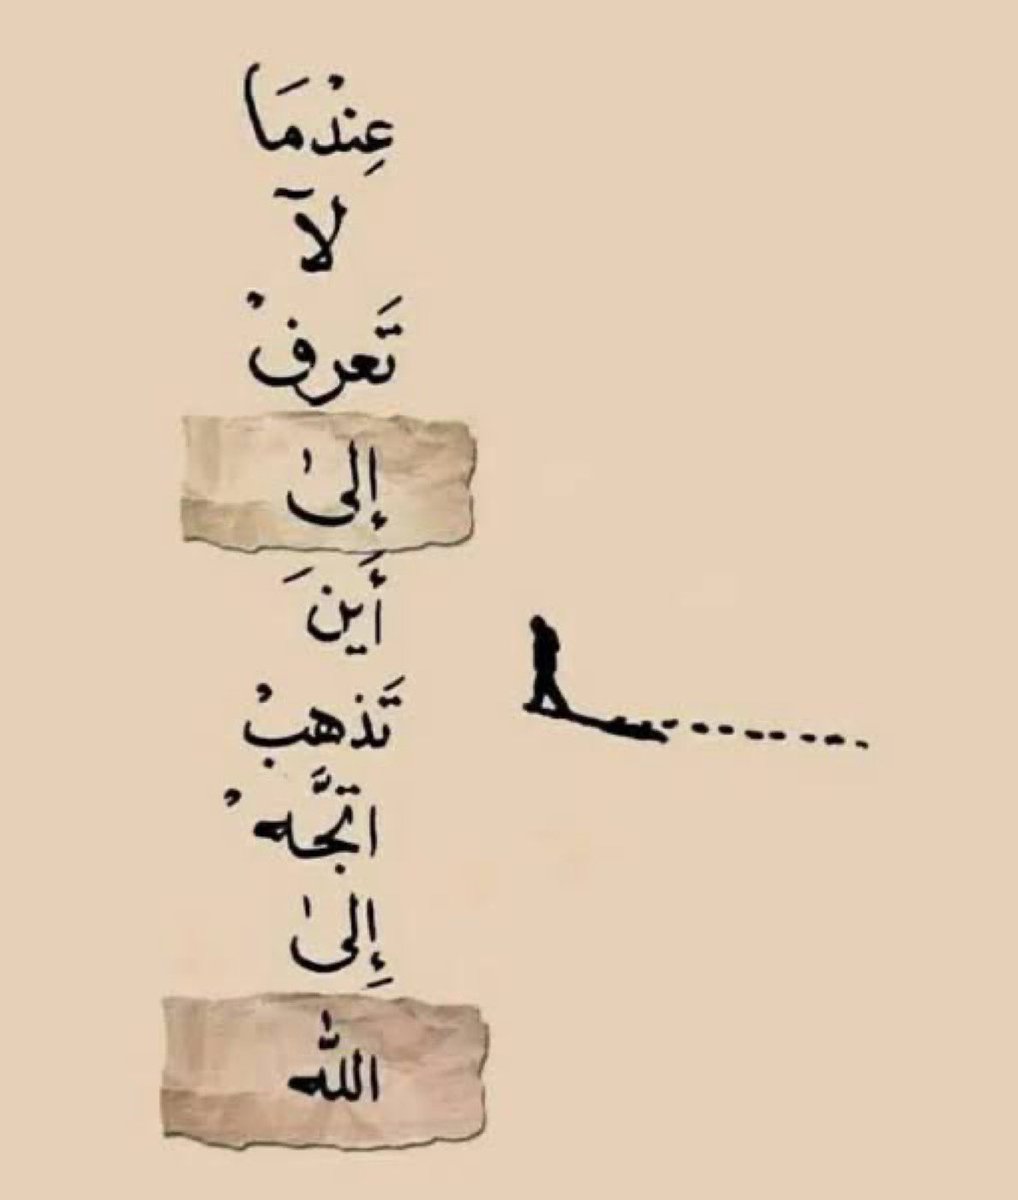 عِنْدَمَا
لآ
تَعرفْ
إلىٰ
أَينَ
تَذهبْ
اتجَّهْ
إِلىٰ
اللّٰه